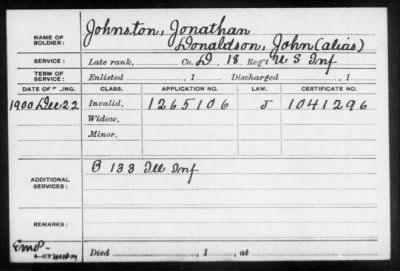 NAME OF SOLDIER: Johnston, Jonathan
Donaldson, John (alias)
SERVICE: Late rank, Co. D. 18 Reg't U S Inf
TERM OF SERVICE: Enlisted , 1 Discharged , 1
DATE OF FILING. CLASS. APPLICATION NO. LAW. CERTIFICATE NO.
1900 Dec 22 Invalid, 1265106 J 1041296
Widow,
Minor,
ADDITIONAL SERVICES: B 133 Ill Inf
REMARKS:
Died , 1 , at